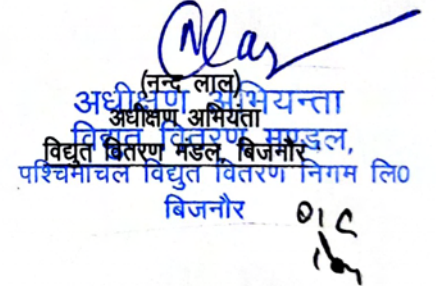 (नन्द लाल)
अधीक्षण अभियन्ता
अधीक्षण अभियंता
विद्युत वितरण मण्डल,
विद्युत वितरण मंडल, बिजनौर
पश्चिमांचल विद्युत वितरण निगम लि0
बिजनौर
O/C